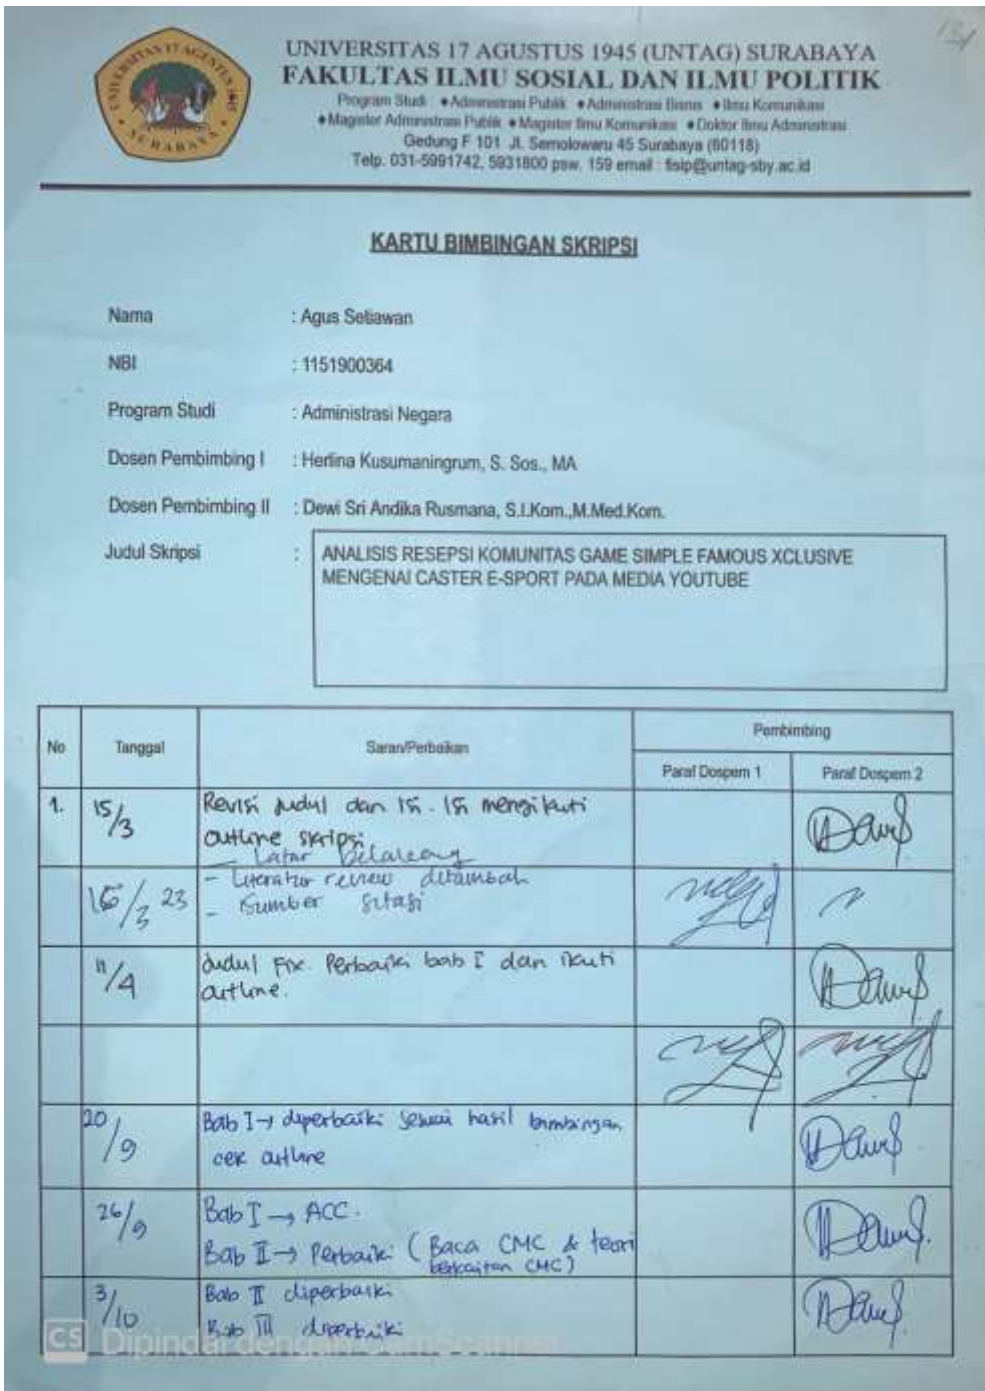 UNIVERSITAS 17 AGUSTUS 1945 (UNTAG) SURABAYA
FAKULTAS ILMU SOSIAL DAN ILMU POLITIK
Program Studi ♦Administrasi Publik ♦Administrasi Bisnis ♦Ilmu Komunikasi
♦Magister Administrasi Publik ♦Magister Ilmu Komunikasi ♦Doktor Ilmu Administrasi
Gedung F 101 Jl. Semolowaru 45 Surabaya (60118)
Telp. 031-5991742, 5931800 psw. 159 email : fisip@untag-sby.ac.id
KARTU BIMBINGAN SKRIPSI
Nama : Agus Setiawan
NBI : 1151900364
Program Studi : Administrasi Negara
Dosen Pembimbing I : Herlina Kusumaningrum, S. Sos., MA
Dosen Pembimbing II : Dewi Sri Andika Rusmana, S.I.Kom.,M.Med.Kom.
Judul Skripsi : ANALISIS RESEPSI KOMUNITAS GAME SIMPLE FAMOUS XCLUSIVE
MENGENAI CASTER E-SPORT PADA MEDIA YOUTUBE
No Tanggal Saran/Perbaikan Pembimbing
Paraf Dospem 1 Paraf Dospem 2
1. 15/3 Revisi judul dan isi. Isi mengikuti
outline skripsi
- Latar Belakang
- Literatur review ditambah
16/3 23 - Sumber sitasi
11/4 Judul Fix. Perbaiki bab I dan ikuti
outline.
20/9 Bab I → diperbaiki sesuai hasil bimbingan
cek outline
26/9 Bab I → ACC.
Bab II → Perbaiki (Baca CMC & teori
berkaitan CMC)
3/10 Bab II diperbaiki
Bab III diperbaiki
CS Dipindai dengan CamScanner